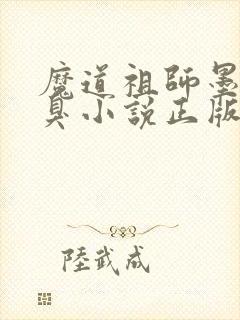 魔道祖師墨
臭小説正版
陸武成